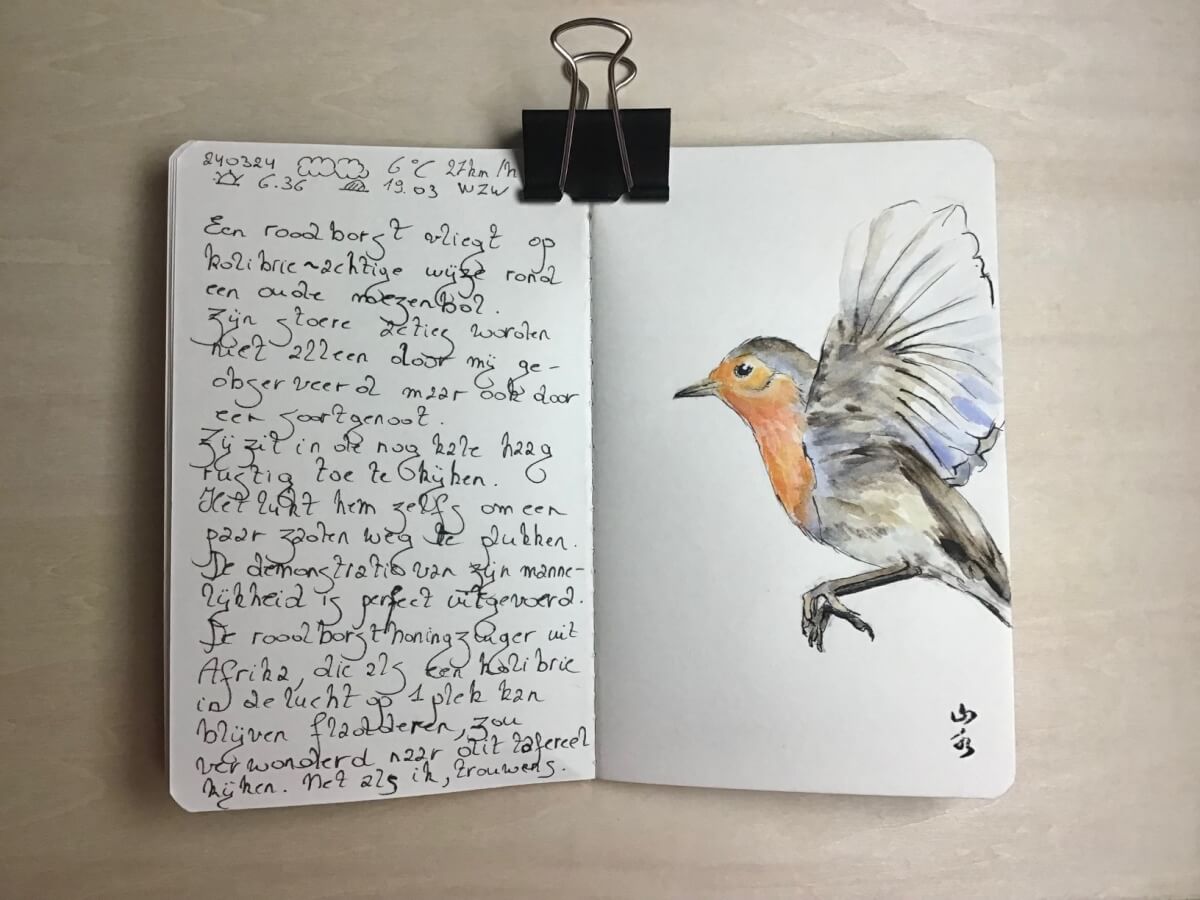 240324 6°C 27km/h
6.36 19.03 WZW
Een roodborst vliegt op
kolibrie~achtige wijze rond
een oude mezenbol.
Zijn stoere acties worden
niet alleen door mij ge-
observeerd maar ook door
een soortgenoot.
Zij zit in de nog kale haag
rustig toe te kijken.
Het lukt hem zelfs om een
paar zaden weg te plukken.
De demonstratie van zijn manne-
lijkheid is perfect uitgevoerd.
De roodborsthoningzuiger uit
Afrika, die als een kolibrie
in de lucht op 1 plek kan
blijven fladderen, zou
verwonderd naar dit tafereel
kijken. Net als ik, trouwens.
山